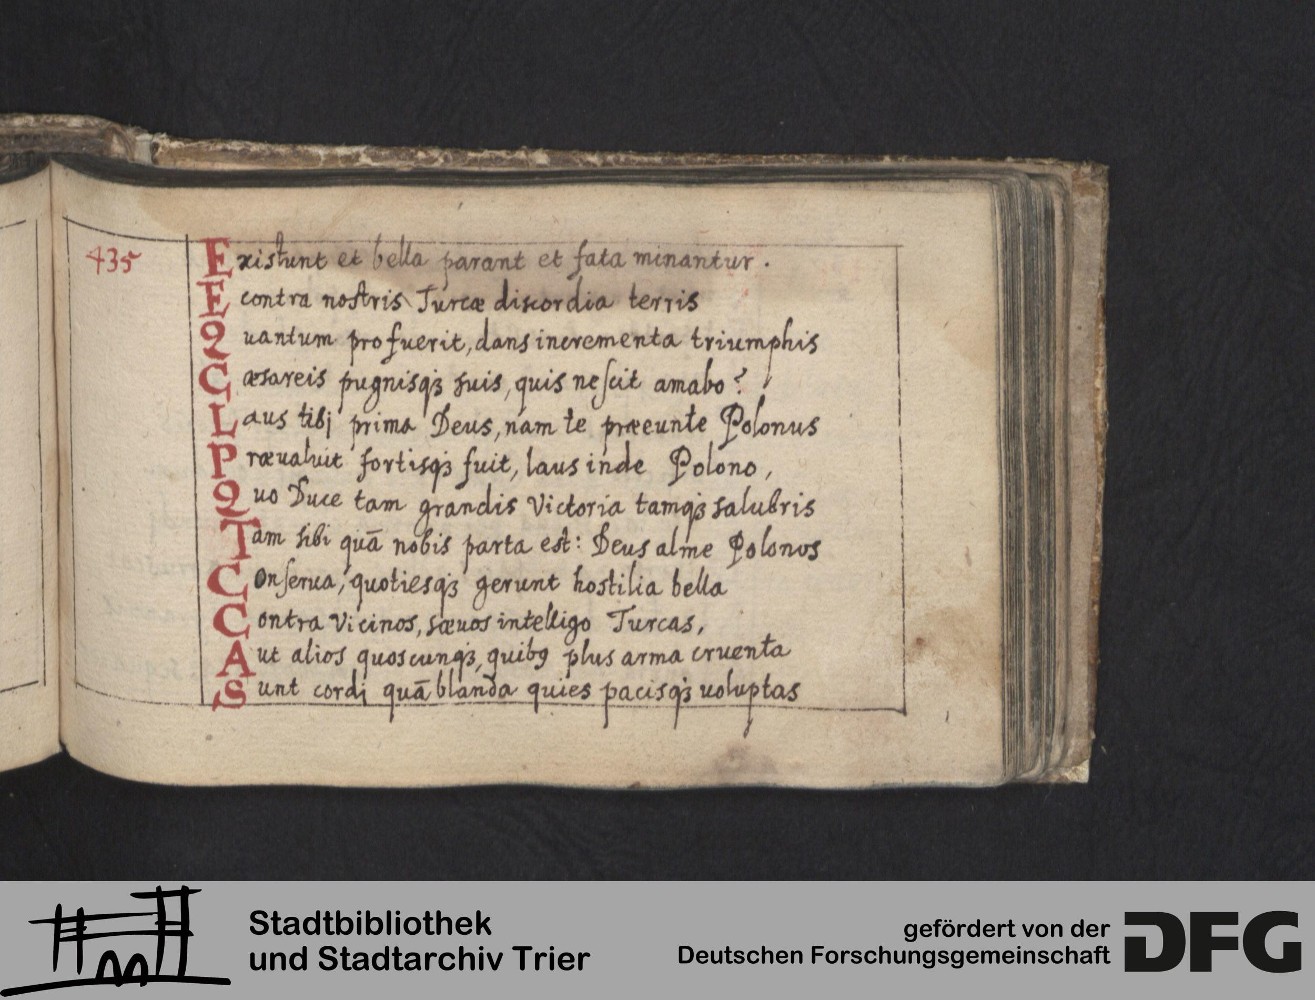 435
Existunt et bella parant et fata minantur.
E contra nostris Turcæ discordia terris
Quantum profuerit, dans incrementa triumphis
Cæsareis pugnisqꝫ suis, quis nescit amabo?
Laus tibj prima Deus, nam te præeunte Polonus
Præualuit fortisqꝫ fuit, laus inde Polono,
Quo Duce tam grandis Victoria tamqꝫ salubris
Tam sibi quā nobis parta est: Deus alme Polonos
Conserua, quotiesqꝫ gerunt hostilia bella
Contra Vicinos, sæuos intelligo Turcas,
Aut alios quoscunqꝫ, quibꝰ plus arma cruenta
Sunt cordj quā blanda quies pacisqꝫ uoluptas
Stadtbibliothek
und Stadtarchiv Trier
gefördert von der
Deutschen Forschungsgemeinschaft
DFG